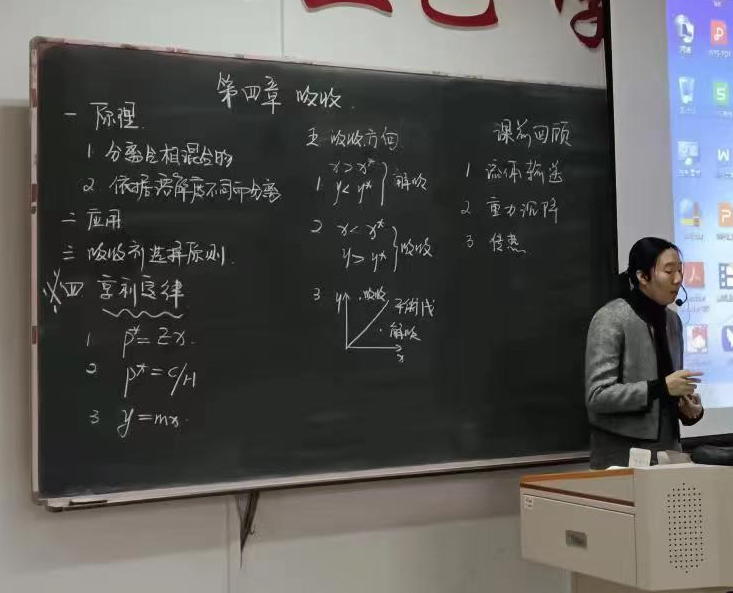 第四章 吸收
一 原理
1 分离气相混合物
2. 依据溶解度不同而分离
二 应用
三 吸收剂选择原则.
※四 亨利定律
1 p*=Ex.
2 p*=c/H
3 y=mx.
五 吸收方向
1. x>x*
y<y* 解吸
2 x<x*
y>y* 吸收
3 y
·吸收
平衡线
·解吸
x
课前回顾
1 流体输送
2 重力沉降
3 传热